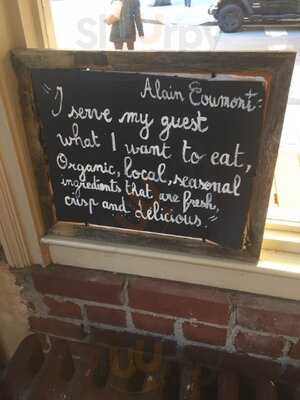 Alain Coumont:
"I serve my guest
what I want to eat,
Organic, local, seasonal
ingredients that are fresh,
crisp and delicious."